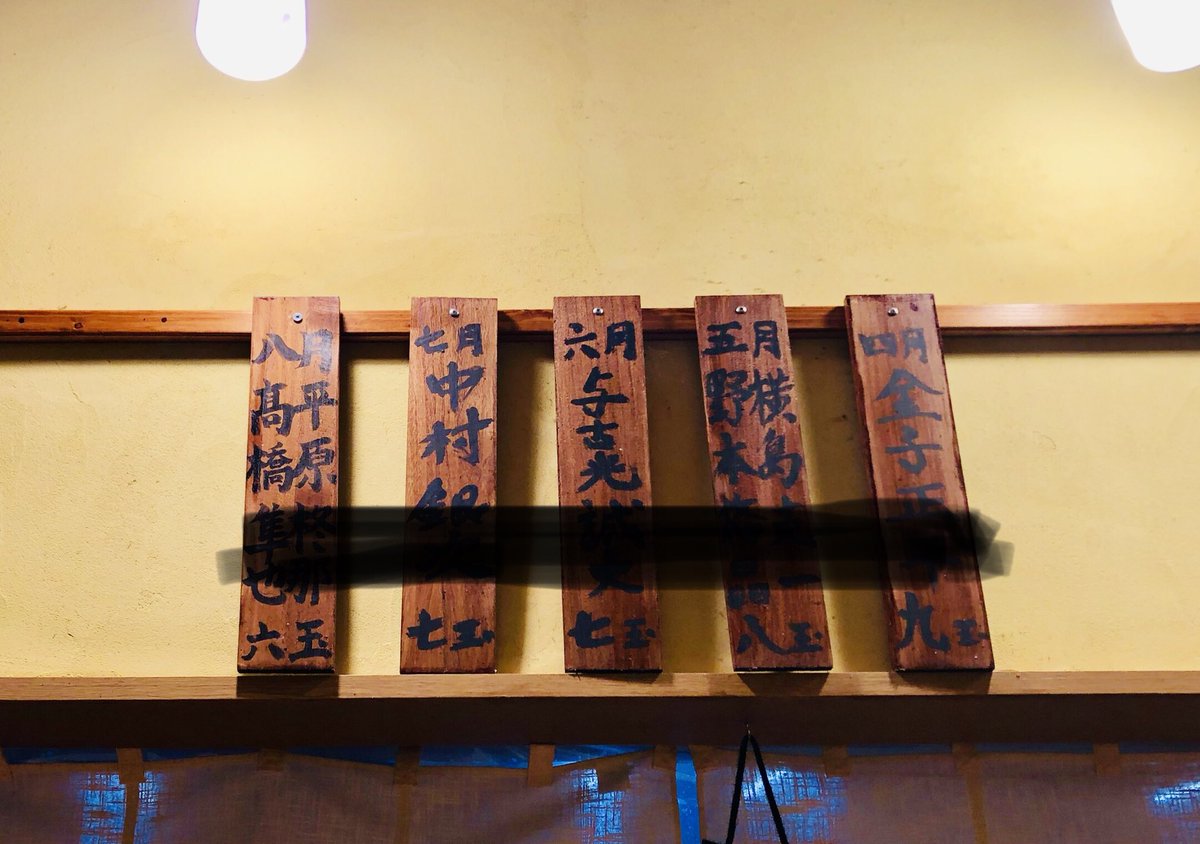 四月
金子
九玉
五月
横島
野本
八玉
六月
与古光
七玉
七月
中村
七玉
八月
平原柊那
髙橋隼也
六玉